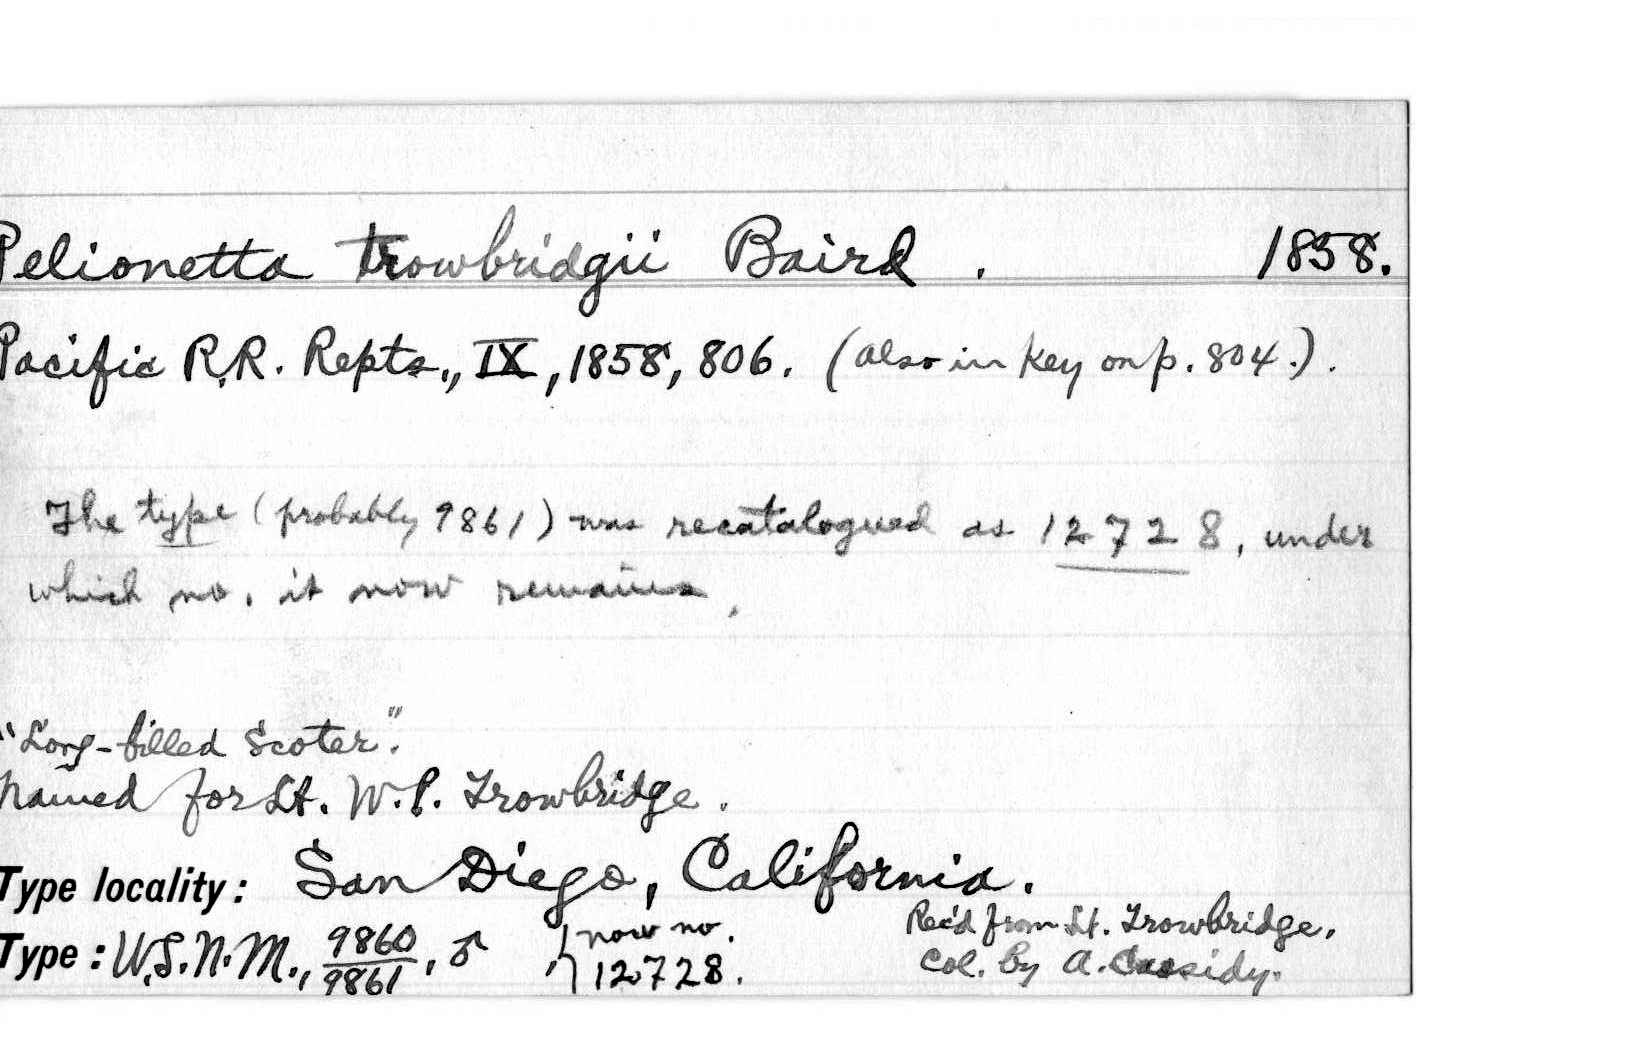 Pelionetta trowbridgii Baird . 1858.
Pacific R.R. Repts., IX, 1858, 806. (also in key on p. 804.).
The type (probably 9861) was recatalogued as 12728, under
which no. it now remains.
"Long-billed Scoter".
Named for Lt. W.P. Trowbridge.
Type locality: San Diego, California.
Rec'd from Lt. Trowbridge,
Type: U.S.N.M., 9860/9861, ♂ } now no. 12728.
Col. by A. Cassidy.